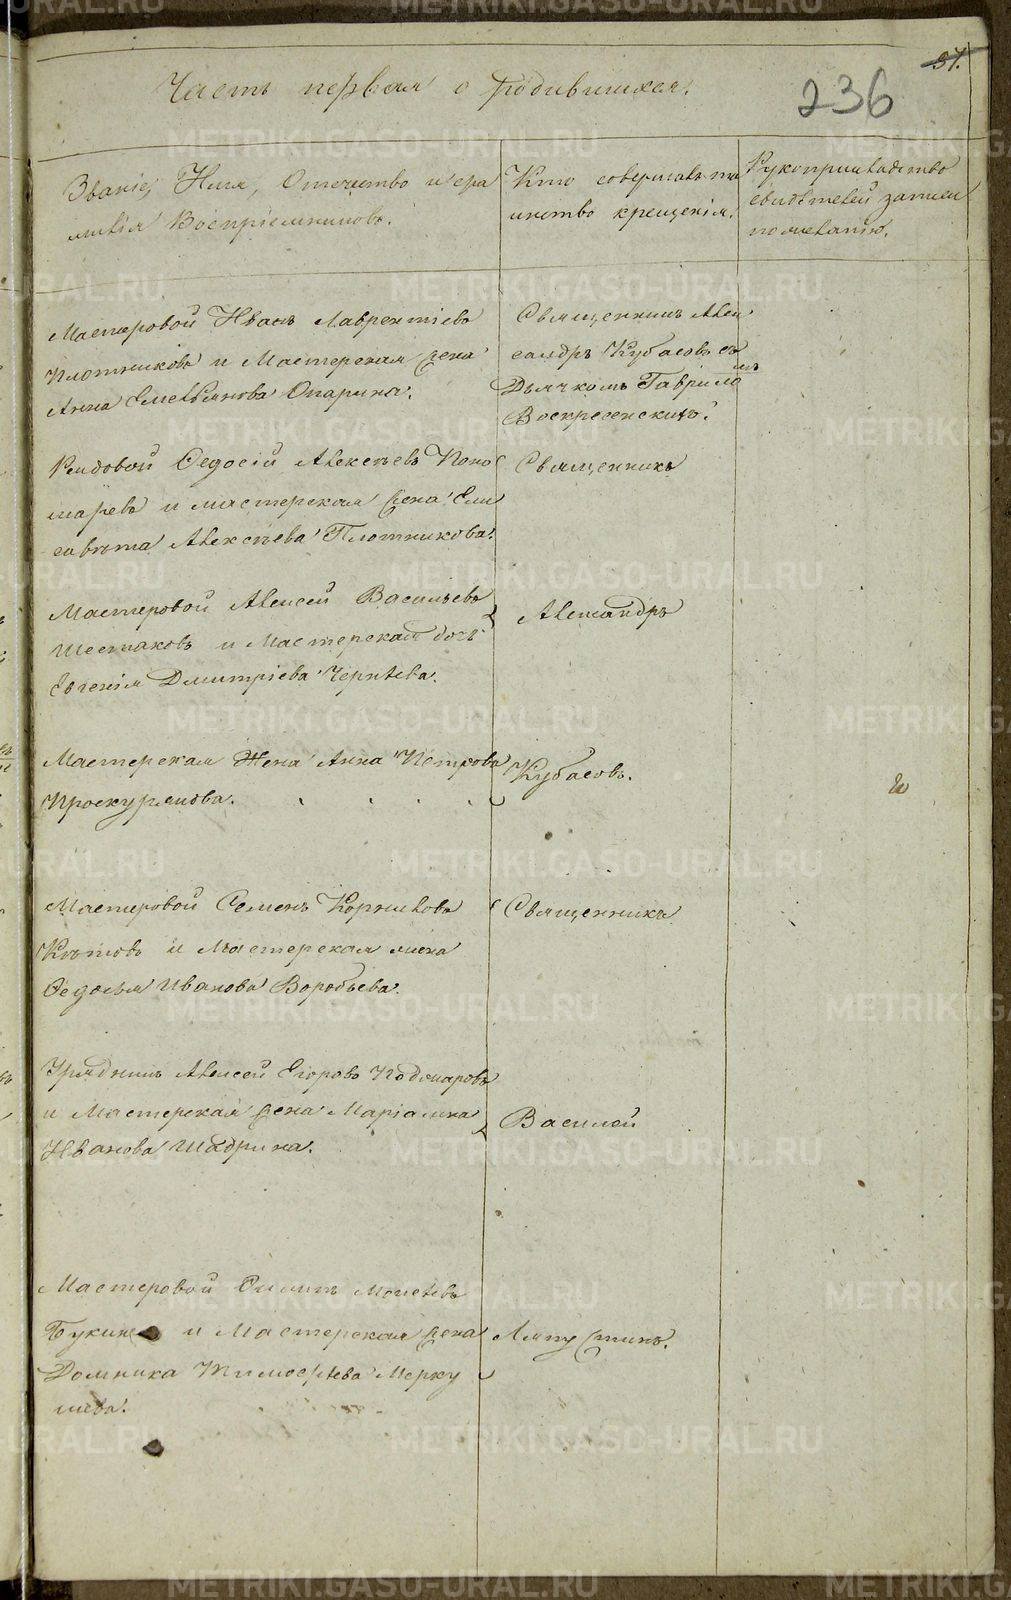 57.
236
Часть первая о родившихся.
Званіе, Имя, Отечество и фа
милія Воспріемниковъ.
Кто совершалъ та
инство крещенія.
Рукоприкладство
свидѣтелей записи
по желанію.
Мастеровой Иванъ Лаврентіевъ
Плотниковъ и Мастерская жена
Анна Емельянова Опарина.
Священникъ Алек
сандръ Кубасовъ съ
Дьячкомъ Гаврило
мъ
Воскресенскимъ.
Рядовой Ѳедосій Алексѣевъ Поно
маревъ и мастерская жена Ели
савѣта Алексѣева Плотникова.
Священникъ
Мастеровой Алексей Васильевъ
Шестаковъ и Мастерская дочь
Евгенія Дмитріева Черпѣева.
Александръ
Мастерская Жена Анна Петрова
Проскурякова.
Кубасовъ.
Мастеровой Семенъ Корниловъ
Кѣтовъ и Мастерская жена
Ѳедосья Иванова Воробьева.
Священникъ
Урядникъ Алексей Егоровъ Подкаровъ
и Мастерская жена Маріамна
Иванова Шадрина.
Василей
Мастеровой Филипъ Моисѣевъ
Букинъ и Мастерская жена
Домника Тимофѣева Мерку
шева.
Ляпустинъ.
METRIKI.GASO-URAL.RU